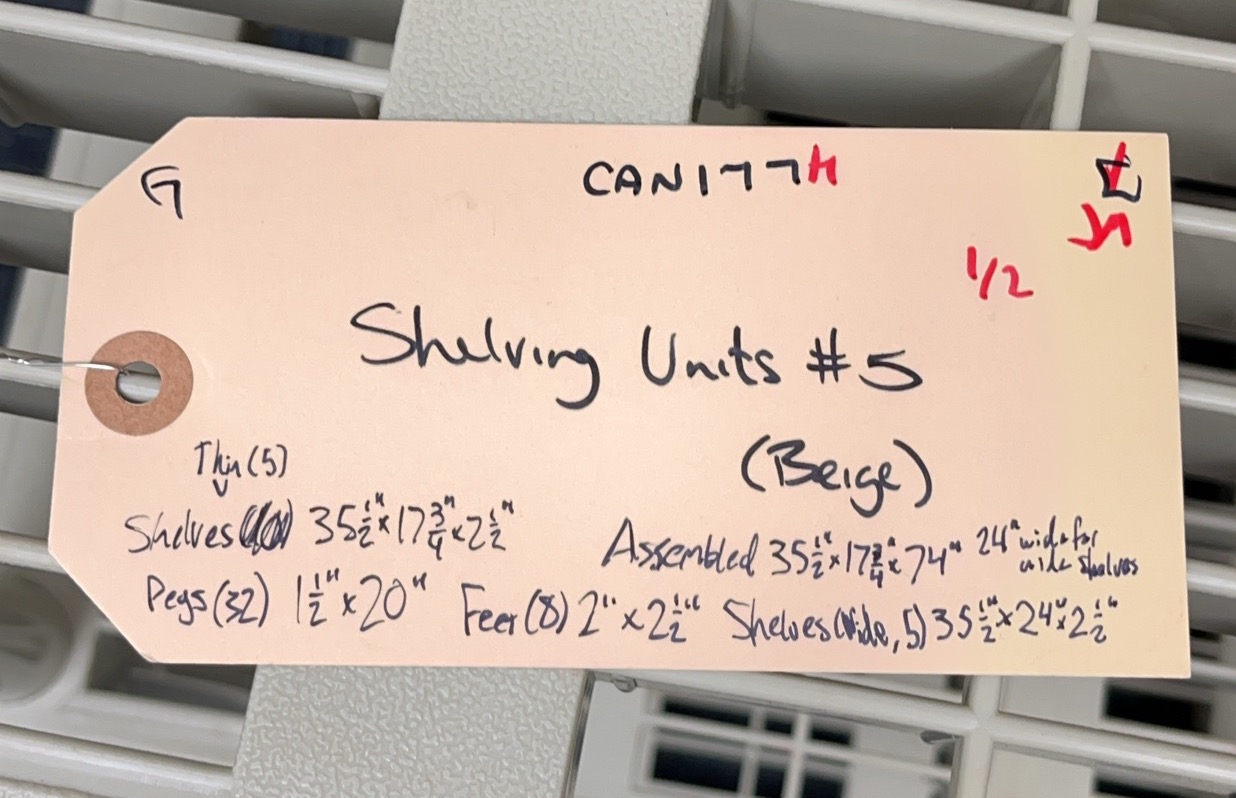 G CAN177H
1/2
Shelving Units #5
(Beige)
Thin (5)
Shelves 35 1/2" x 17 3/4" x 2 1/2"
Assembled 35 1/2" x 17 3/4" x 74" 24" wide for wide shelves
Pegs (32) 1 1/2" x 20" Feet (8) 2" x 2 1/2" Shelves (Wide, 5) 35 1/2" x 24" x 2 1/2"